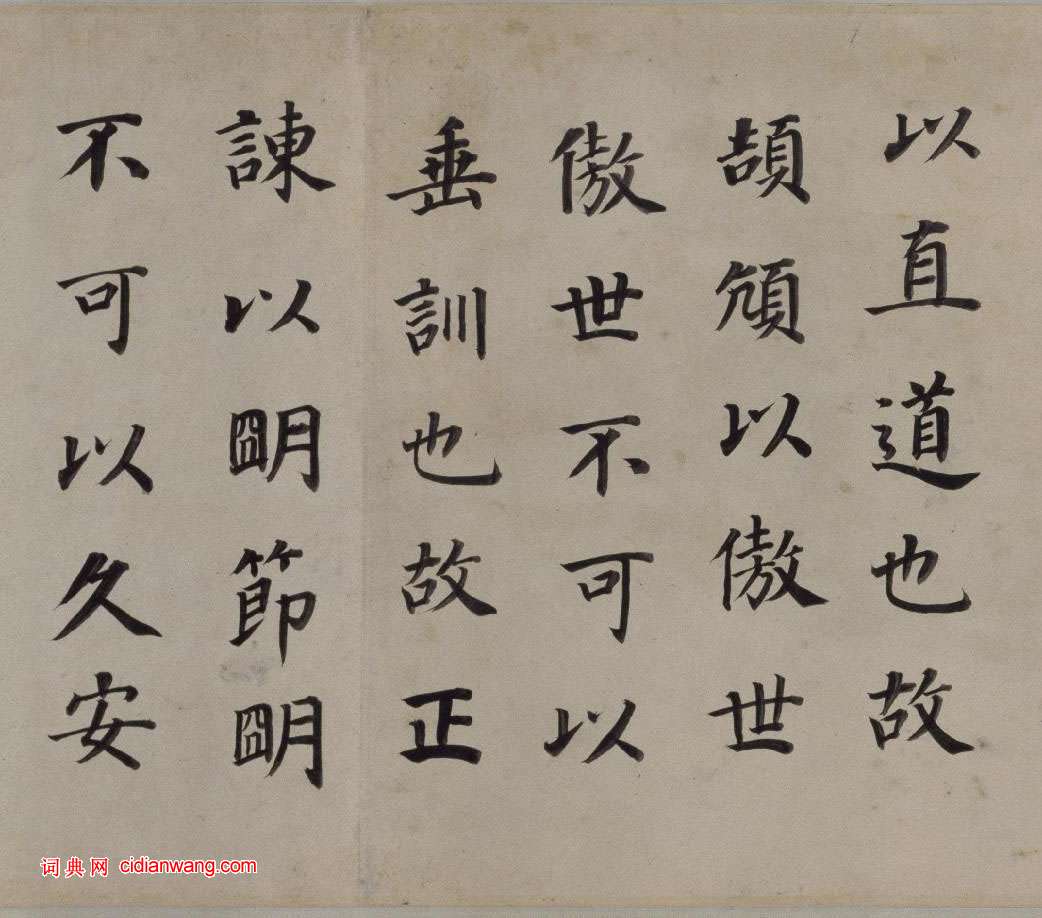 以直道也故
頡頏以傲世
傲世不可以
垂訓也故正
諫以朙節朙
不可以久安
词典网 cidianwang.com